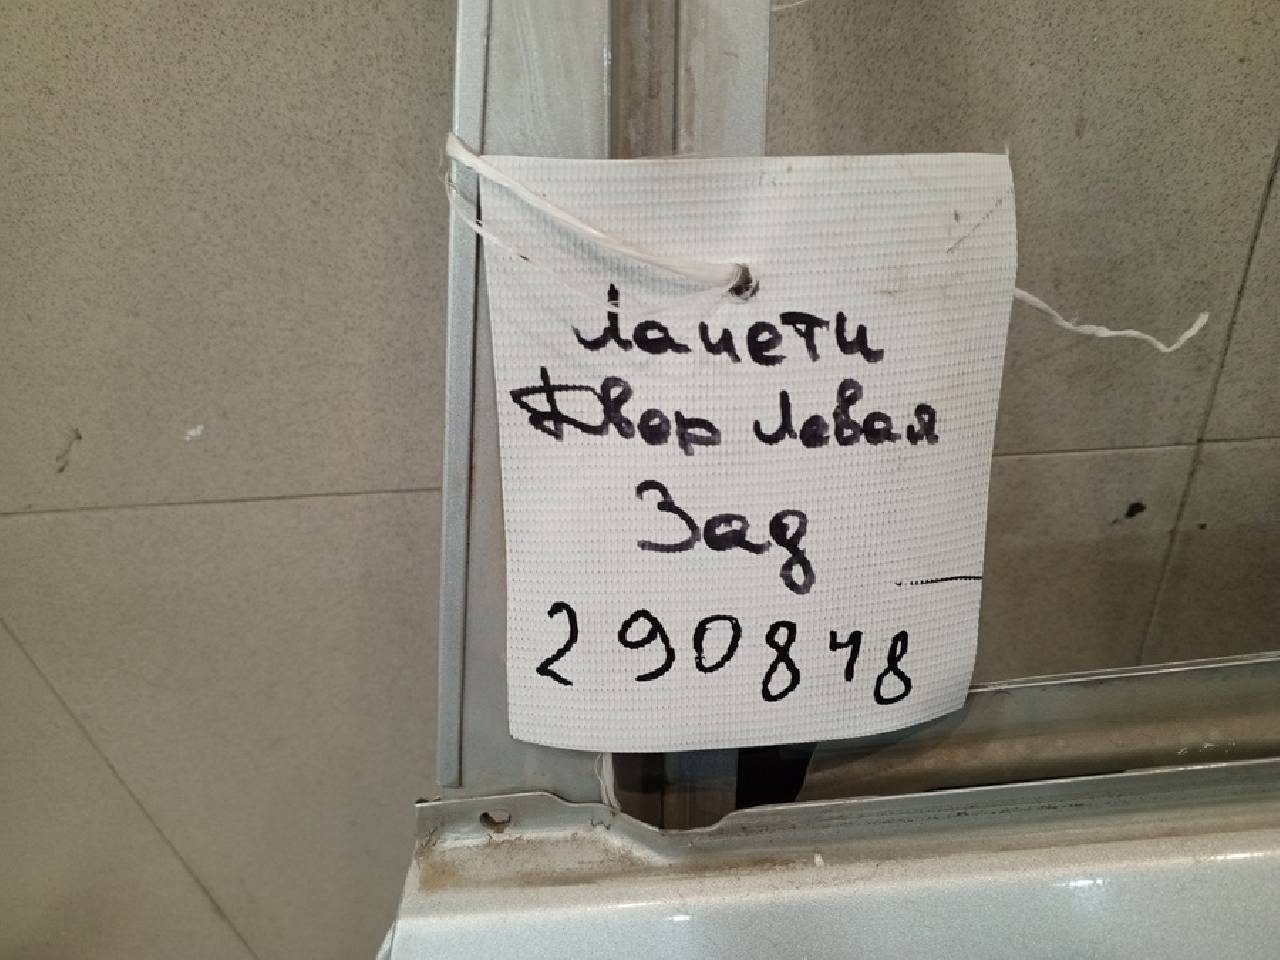 Лацети
Двер левая
Зад
290848